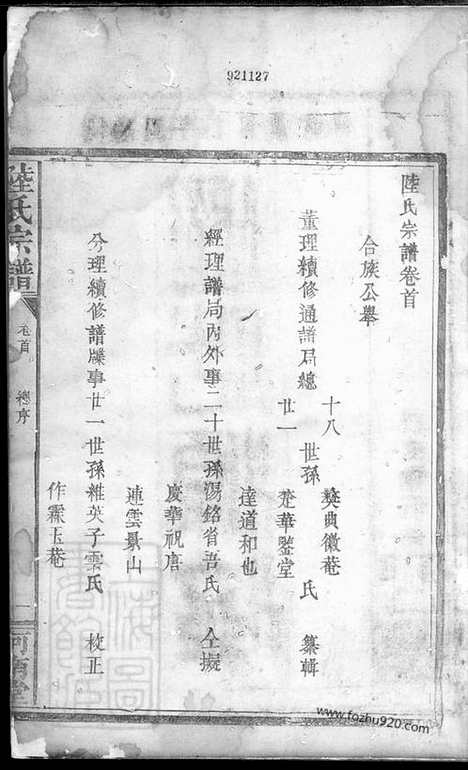 921127
陸氏宗譜卷首
合族公舉
董理續修通譜局總
十八
廿一
世孫
奬典徽菴
楚華鑒堂
氏
纂輯
達道和也
經理譜局內外事二十世孫湯銘省吾氏
仝擬
慶華祝唐
連雲景山
分理續修譜牒事廿一世孫維英子雲氏
校正
作霖玉菴
陸氏宗譜
卷首
總序
一
www.fozhu920.com